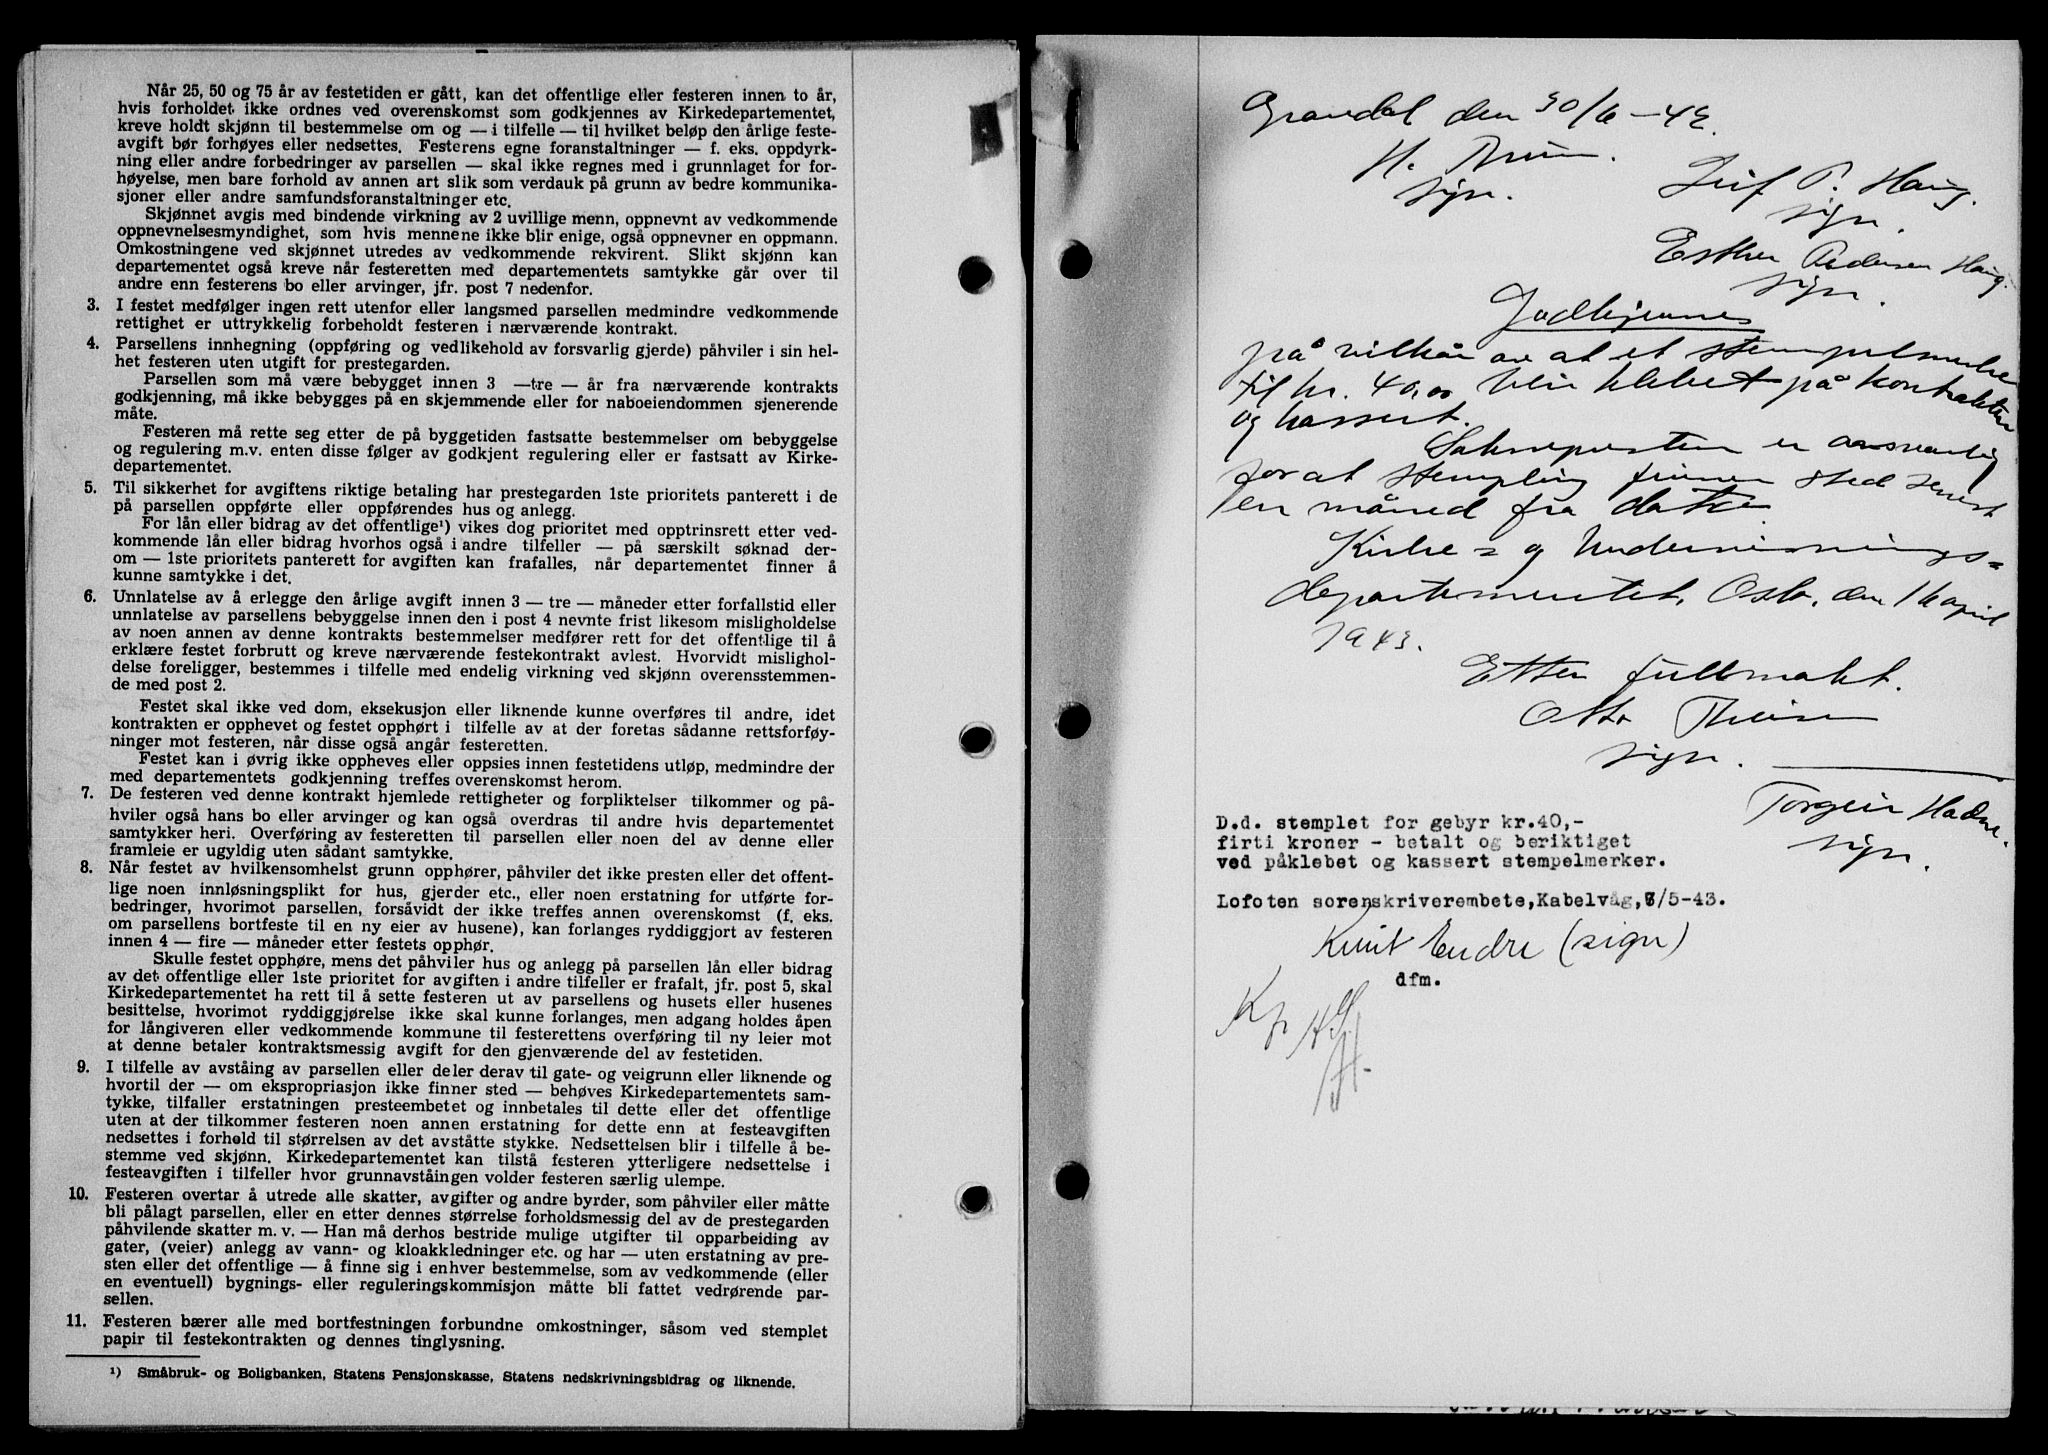 Når 25, 50 og 75 år av festetiden er gått, kan det offentlige eller festeren innen to år,
hvis forholdet ikke ordnes ved overenskomst som godkjennes av Kirkedepartementet,
kreve holdt skjønn til bestemmelse om og — i tilfelle — til hvilket beløp den årlige feste-
avgift bør forhøyes eller nedsettes. Festerens egne foranstaltninger — f. eks. oppdyrk-
ning eller andre forbedringer av parsellen — skal ikke regnes med i grunnlaget for for-
høyelse, men bare forhold av annen art slik som verdauk på grunn av bedre kommunika-
sjoner eller andre samfundsforanstaltninger etc.
Skjønnet avgis med bindende virkning av 2 uvillige menn, oppnevnt av vedkommende
oppnevnelsesmyndighet, som hvis mennene ikke blir enige, også oppnevner en oppmann.
Omkostningene ved skjønnet utredes av vedkommende rekvirent. Slikt skjønn kan
departementet også kreve når festeretten med departementets samtykke går over til
andre enn festerens bo eller arvinger, jfr. post 7 nedenfor.
3. I festet medfølger ingen rett utenfor eller langsmed parsellen medmindre vedkommende
rettighet er uttrykkelig forbeholdt festeren i nærværende kontrakt.
4. Parsellens innhegning (oppføring og vedlikehold av forsvarlig gjerde) påhviler i sin hel-
het festeren uten utgift for prestegarden.
Parsellen som må være bebygget innen 3 —tre — år fra nærværende kontrakts
godkjenning, må ikke bebygges på en skjemmende eller for naboeiendommen sjenerende
måte.
Festeren må rette seg etter de på byggetiden fastsatte bestemmelser om bebyggelse
og regulering m.v. enten disse følger av godkjent regulering eller er fastsatt av Kirke-
departementet.
5. Til sikkerhet for avgiftens riktige betaling har prestegarden 1ste prioritets panterett i de
på parsellen oppførte eller oppførendes hus og anlegg.
For lån eller bidrag av det offentlige¹) vikes dog prioritet med opptrinsrett etter ved-
kommende lån eller bidrag hvorhos også i andre tilfeller — på særskilt søknad der-
om — 1ste prioritets panterett for avgiften kan frafalles, når departementet finner å
kunne samtykke i det.
6. Unnlatelse av å erlegge den årlige avgift innen 3 — tre — måneder etter forfallstid eller
unnlatelse av parsellens bebyggelse innen den i post 4 nevnte frist likesom misligholdelse
av noen annen av denne kontrakts bestemmelser medfører rett for det offentlige til å
erklære festet forbrutt og kreve nærværende festekontrakt avlest. Hvorvidt misilghol-
delse foreligger, bestemmes i tilfelle med endelig virkning ved skjønn overensstemmen-
de med post 2.
Festet skal ikke ved dom, eksekusjon eller liknende kunne overføres til andre, idet
kontrakten er opphevet og festet opphørt i tilfelle av at der foretas sådanne rettsforføy-
ninger mot festeren, når disse også angår festeretten.
Festet kan i øvrig ikke oppheves eller oppsies innen festetidens utløp, medmindre der
med departementets godkjenning treffes overenskomst herom.
7. De festeren ved denne kontrakt hjemlede rettigheter og forpliktelser tilkommer og på-
hviler også hans bo eller arvinger og kan også overdras til andre hvis departementet
samtykker heri. Overføring av festeretten til parsellen eller noen del av denne eller
framleie er ugyldig uten sådant samtykke.
8. Når festet av hvilkensomhelst grunn opphører, påhviler det ikke presten eller det offent-
lige noen innløsningsplikt for hus, gjerder etc., eller noen erstatning for utførte for-
bedringer, hvorimot parsellen, forsåvidt der ikke treffes annen overenskomst (f. eks.
om parsellens bortfeste til en ny eier av husene), kan forlanges ryddiggjort av festeren
innen 4 — fire — måneder etter festets opphør.
Skulle festet opphøre, mens det påhviler hus og anlegg på parsellen lån eller bidrag
av det offentlige eller 1ste prioritet for avgiften i andre tilfeller er frafalt, jfr. post 5, skal
Kirkedepartementet ha rett til å sette festeren ut av parsellens og husets eller husenes
besittelse, hvorimot ryddiggjørelse ikke skal kunne forlanges, men adgang holdes åpen
for långiveren eller vedkommende kommune til festerettens overføring til ny leier mot
at denne betaler kontraktsmessig avgift for den gjenværende del av festetiden.
9. I tilfelle av avståing av parsellen eller deler derav til gate- og veigrunn eller liknende og
hvortil der — om ekspropriasjon ikke finner sted — behøves Kirkedepartementets sam-
tykke, tilfaller erstatningen presteembetet og innbetales til dette eller det offentlige
uten at der tilkommer festeren noen annen erstatning for dette enn at festeavgiften
nedsettes i forhold til størrelsen av det avståtte stykke. Nedsettelsen blir i tilfelle å be-
stemme ved skjønn. Kirkedepartementet kan tilstå festeren ytterligere nedsettelse i
festeavgiften i tilfeller hvor grunnavståingen volder festeren særlig ulempe.
10. Festeren overtar å utrede alle skatter, avgifter og andre byrder, som påhviler eller måtte
bli pålagt parsellen, eller en etter dennes størrelse forholdsmessig del av de prestegarden
påhvilende skatter m. v. — Han må derhos bestride mulige utgifter til opparbeiding av
gater, (veier) anlegg av vann- og kloakkledninger etc. og har — uten erstatning av pre-
sten eller det offentlige — å finne sig i enhver bestemmelse, som av vedkommende (eller
en eventuell) bygnings- eller reguleringskommisjon måtte bli fattet vedrørende par-
sellen.
11. Festeren bærer alle med bortfestningen forbundne omkostninger, såsom ved stemplet
papir til festekontrakten og dennes tinglysning.
¹) Småbruk- og Boligbanken, Statens Pensjonskasse, Statens nedskrivningsbidrag og liknende.
Gravdal den 30/6-42.
H.
sign.
Leif P. Haug.
sign.
Esther Pedersen Haug.
sign.
Godkjennes
på vilkår av at et stempelmerke
til kr. 40,00 blir klebet på kontrakten
og kassert.
Soknepresten er ansvarlig
for at stempling finner sted senest
en måned fra dato.
Kirke- og Undervisnings-
departementet, Oslo, den 16 april
1943.
Etter fullmakt.
Otto
sign.
Torgeir Hadne.
sign.
D.d. stemplet for gebyr kr.40,-
firti kroner - betalt og beriktiget
ved påklebet og kassert stempelmerker.
Lofoten sorenskriverembete,Kabelvåg,8/5-43.
Knut Endre (sign)
dfm.